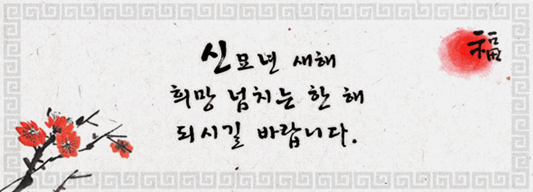 신묘년 새해
희망 넘치는 한 해
되시길 바랍니다.
福